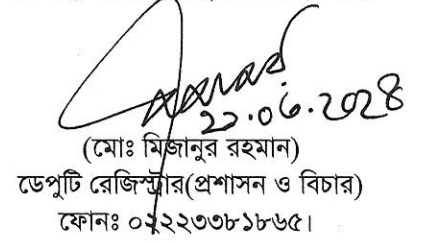 ২১.০৬.২০২৪
(মোঃ মিজানুর রহমান)
ডেপুটি রেজিস্ট্রার(প্রশাসন ও বিচার)
ফোনঃ ০২২২৩৩৮১৮৬৫।